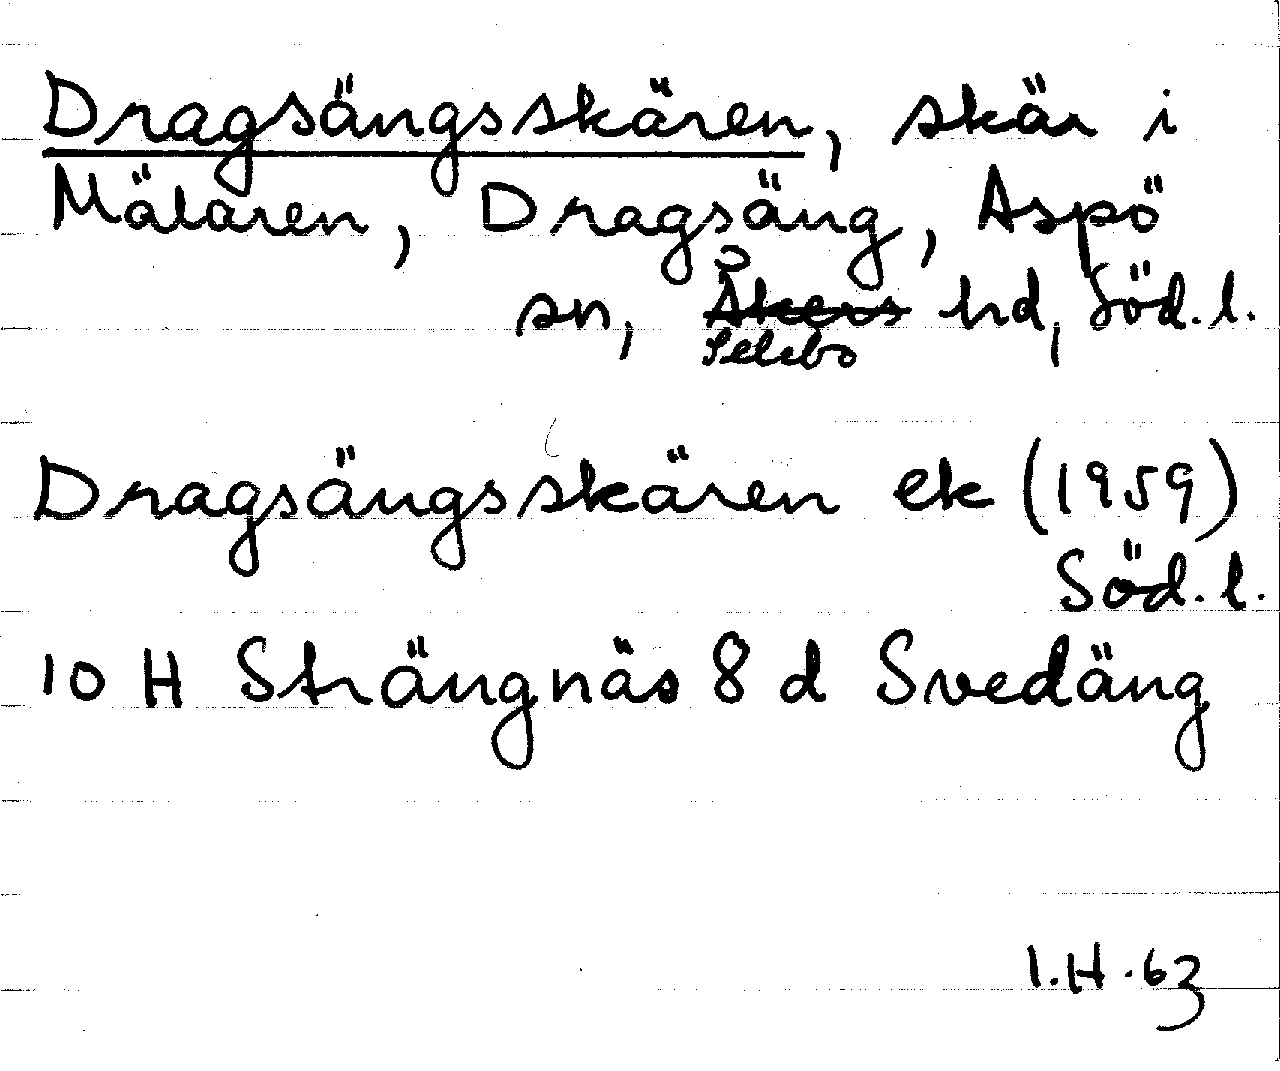 Dragsängsskären, skär i
Mälaren, Dragsäng, Aspö
sn, Åkers hd, Söd. l.
Selebo
Dragsängsskären ek (1959)
Söd. l.
10 H Strängnäs 8 d Svedäng
I.H.63